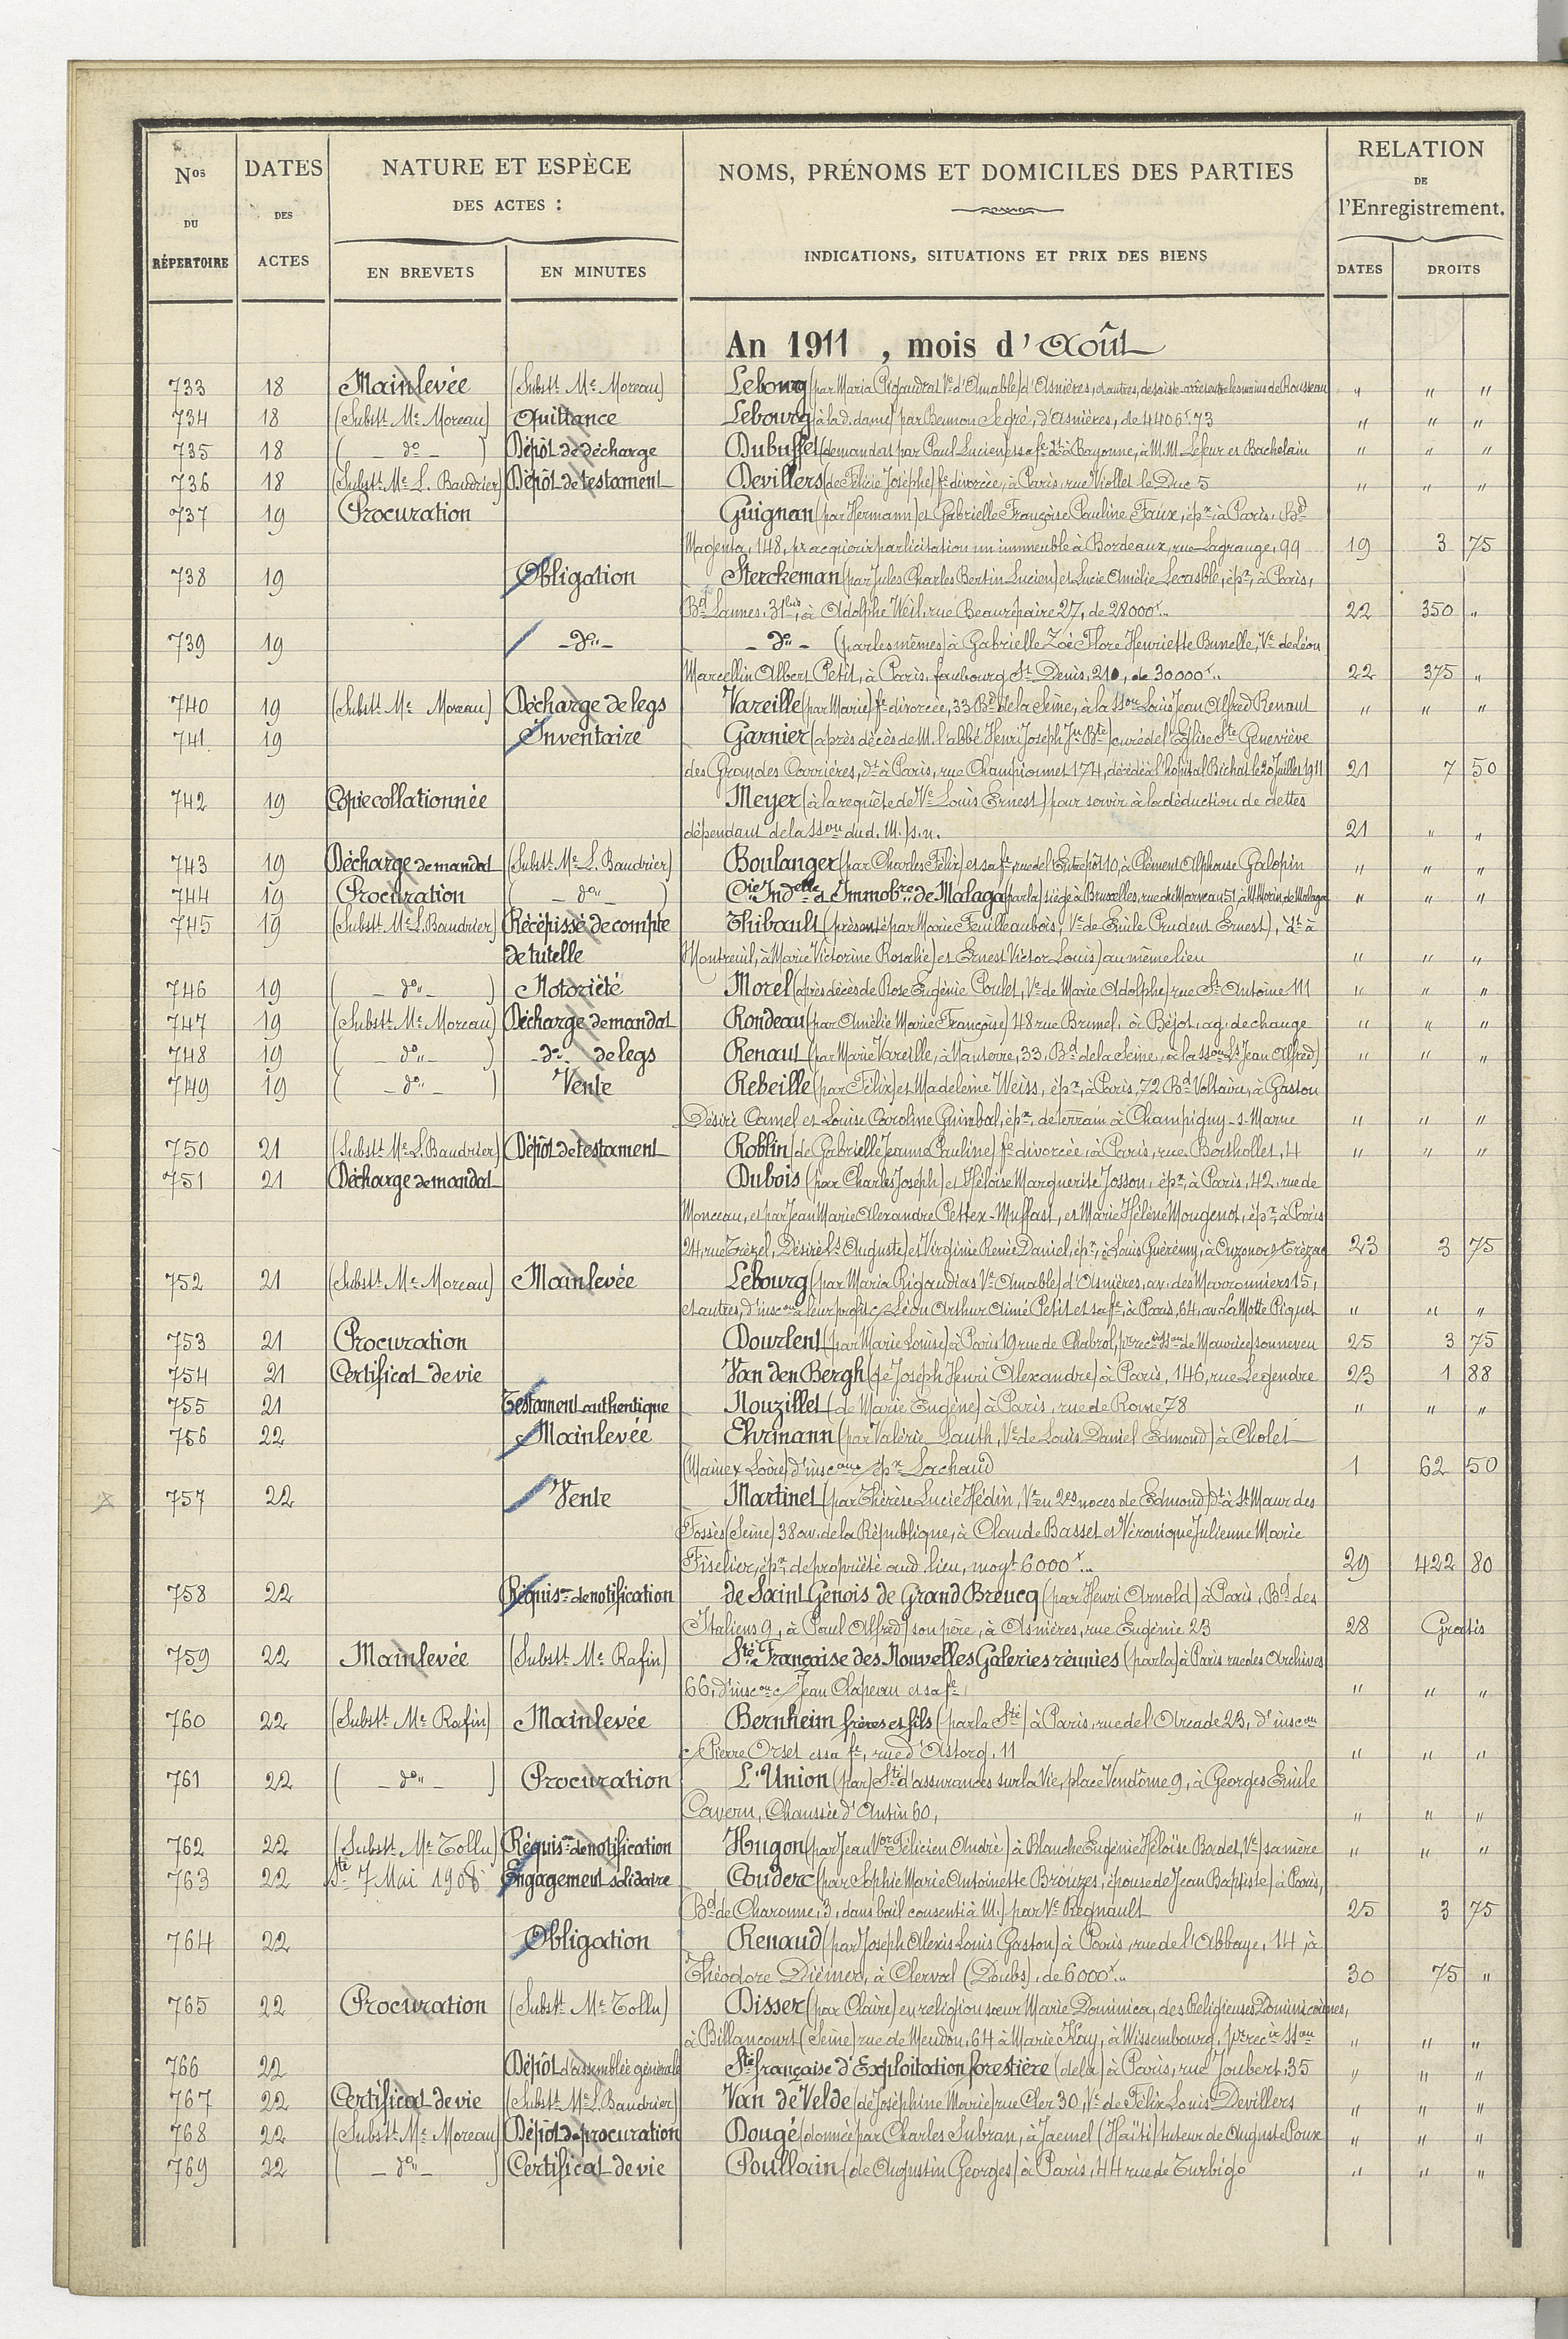 Nos DU RÉPERTOIRE
DATES DES ACTES
NATURE ET ESPÈCE DES ACTES :
EN BREVETS
EN MINUTES
NOMS, PRÉNOMS ET DOMICILES DES PARTIES
INDICATIONS, SITUATIONS ET PRIX DES BIENS
RELATION DE l'Enregistrement.
DATES
DROITS
An 1911, mois d'Août
733 18 Mainlevée (Substt Me Moreau) Lebourg (par Maria Rigaudias Ve d'Amable) d'Asnières, et autres, de saisie-arrêt entre les mains de Rousseau " " "
734 18 (Substt Me Moreau) Quittance Lebourg (à la d. dame) par Bemon Segré, d'Asnières, de 4406f73 " " "
735 18 ( - do - ) Dépôt de décharge Dubuffet (de mandat par Paul Lucien) et sa fe dt à Bayonne, à M.M. Lefeur et Bachelain " " "
736 18 (Substt Me L. Baudrier) Dépôt de testament Devillers (de Félicie Josèphe) fe divorcée, à Paris, rue Viollet le Duc 5 " " "
737 19 Procuration Guignan (par Hermann) et Gabrielle Françoise Pauline Faux, épx, à Paris, Bd
Magenta, 148, pr acquérir par licitation un immeuble à Bordeaux, rue Lagrange, 99 19 3 75
738 19 Obligation Sterckeman (par Jules Charles Bertin Lucien) et Lucie Amélie Lecasble, épx, à Paris,
Bd Lannes, 31bis, à Adolphe Weil, rue Beaurepaire 27, de 28000f.. 22 350 "
739 19 - do - - do - (par les mêmes) à Gabrielle Zoé Flore Henriette Brunelle, Ve de Léon
Marcellin Albert Petit, à Paris, faubourg St Denis, 210, de 30000f.. 22 375 "
740 19 (Substt Me Moreau) Décharge de legs Vareille (par Marie) fe divorcée, 33 Bd de la Seine, à la sson Louis Jean Alfred Renaut " " "
741 19 Inventaire Garnier (après décès de M. l'abbé Henri Joseph Jn Bte) curé de l'Eglise Ste Geneviève
des Grandes Carrières, dt à Paris, rue Championnet 174, décédé à l'hôpital Bichat le 20 Juillet 1911 21 7 50
742 19 Copie collationnée Meyer (à la requête de Ve Louis Ernest) pour servir à la déduction de dettes
dépendant de la sson du d. M.) s.n. 21 " "
743 19 Décharge de mandat (Substt Me L. Baudrier) Boulanger (par Charles Félix) et sa fe, rue de l'Entrepôt 10, à Clément Alphonse Galopin " " "
744 19 Procuration ( - do - ) Cie Indelle et Immobre de Malaga (par la) siège à Bruxelles, rue du Marteau 51, à M. Morin, de Malaga " " "
745 19 (Substt Me L. Baudrier) Récépissé de compte Thibault (présenté par Marie Feuilleaubois, Ve de Emile Prudent Ernest), dt à
de tutelle Montreuil, à Marie Victorine Rosalie) et Ernest Victor Louis) au même lieu " " "
746 19 ( - do - ) Notoriété Morel (après décès de Rose Eugénie Poulet, Ve de Marie Adolphe) rue St Antoine 111 " " "
747 19 (Substt Me Moreau) Décharge de mandat Rondeau (par Amélie Marie Françoise) 48 rue Brunel, à Béjot, ag. de change " " "
748 19 ( - do - ) - do - de legs Renaut (par Marie Vareille, à Nanterre, 33, Bd de la Seine, à la sson Ls Jean Alfred) " " "
749 19 ( - do - ) Vente Rebeille (par Félix) et Madeleine Weiss, épx, à Paris, 72 Bd Voltaire, à Gaston
Désiré Camel et Louise Caroline Guimbal, épx, de terrain à Champigny-s-Marne " " "
750 21 (Substt Me L. Baudrier) Dépôt de testament Roblin (de Gabrielle Jeanne Pauline) fe divorcée, à Paris, rue Berthollet, 4 " " "
751 21 Décharge de mandat Dubois (par Charles Joseph) et Héloïse Marguerite Josson, épx, à Paris, 42, rue de
Monceau, et par Jean Marie Alexandre Pettex-Muffat, et Marie Hélène Mougenot, épx, à Paris
24, rue Trézel, Désiré Ls Auguste) et Virginie Renée Daniel, épx, à Louis Guérémy, à Ouzouer s/ Trézée 23 3 75
752 21 (Substt Me Moreau) Mainlevée Lebourg (par Maria Rigaudias Ve Amable) d'Asnières, av. des Marronniers 15,
et autres, d'inscon à leur profit c/ Léon Arthur Aimé Petit et sa fe, à Paris, 64, av. La Motte Piquet " " "
753 21 Procuration Dourlent (par Marie Louise) à Paris 19 rue de Chabrol, pr recir sson de Maurice) son neveu 25 3 75
754 21 Certificat de vie Van den Bergh (de Joseph Henri Alexandre) à Paris, 146, rue Legendre 23 1 88
755 21 Testament authentique Nouzillet (de Marie Eugène) à Paris, rue de Rome 78 " " "
756 22 Mainlevée Ehrmann (par Valérie Lauth, Ve de Louis Daniel Edmond) à Cholet
(Maine & Loire) d'inscon c/ épx Lachaud 1 62 50
757 22 Vente Martinet (par Thérèse Lucie Hédin, Ve en 2es noces de Edmond) dt à St Maur des
Fossés (Seine) 38 av. de la République, à Claude Basset et Véronique Julienne Marie
Fiselier, épx, de propriété aud. lieu, moyt 6000f.. 29 422 80
758 22 Réquison de notification de Saint Genois de Grand Breucq (par Henri Arnold) à Paris, Bd des
Italiens 9, à Paul Alfred) son père, à Asnières, rue Eugénie 23 28 Gratis
759 22 Mainlevée (Substt Me Rafin) Sté Française des Nouvelles Galeries réunies (par la) à Paris rue des Archives
66, d'inscon c/ Jean Clapeau et sa fe, " " "
760 22 (Substt Me Rafin) Mainlevée Bernheim frères et fils (par la Sté) à Paris, rue de l'Arcade 23, d'inscon
c/ Pierre Orset et sa fe, rue d'Astorg, 11 " " "
761 22 ( - do - ) Procuration L'Union (par) Sté d'assurances sur la Vie, place Vendôme 9, à Georges Emile
Cavern, Chaussée d'Antin 60, " " "
762 22 (Substt Me Tollu) Réquison de notification Hugon (par Jean Vor Félicien André) à Blanche Eugénie Héloïse Badet, Ve) sa mère " " "
763 22 Sté 7 Mai 1908 Engagement solidaire Couderc (par Sophie Marie Antoinette Brouzes, épouse de Jean Baptiste) à Paris,
Bd de Charonne, 3, dans bail consenti à M.) par Ve Regnault 25 3 75
764 22 Obligation Renaud (par Joseph Alexis Louis Gaston) à Paris, rue de l'Abbaye, 14, à
Théodore Diémer, à Clerval (Doubs), de 6000f.. 30 75 "
765 22 Procuration (Substt Me Tollu) Disser (par Claire) en religion sœur Marie Dominica, des Religieuses Dominicaines,
à Billancourt (Seine) rue de Meudon, 64 à Marie Kay, à Wissembourg, pr recir sson " " "
766 22 Dépôt d'assemblée générale Sté française d'Exploitation forestière (de la) à Paris, rue Joubert, 35 " " "
767 22 Certificat de vie (Substt Me L. Baudrier) Van de Velde (de Joséphine Marie) rue Cler 30, Ve de Félix Louis Devillers " " "
768 22 (Substt Me Moreau) Dépôt de procuration Dougé (donnée par Charles Subran, à Jacmel (Haïti) tuteur de Auguste Poux " " "
769 22 ( - do - ) Certificat de vie Poullain (de Augustin Georges) à Paris, 44 rue de Turbigo " " "